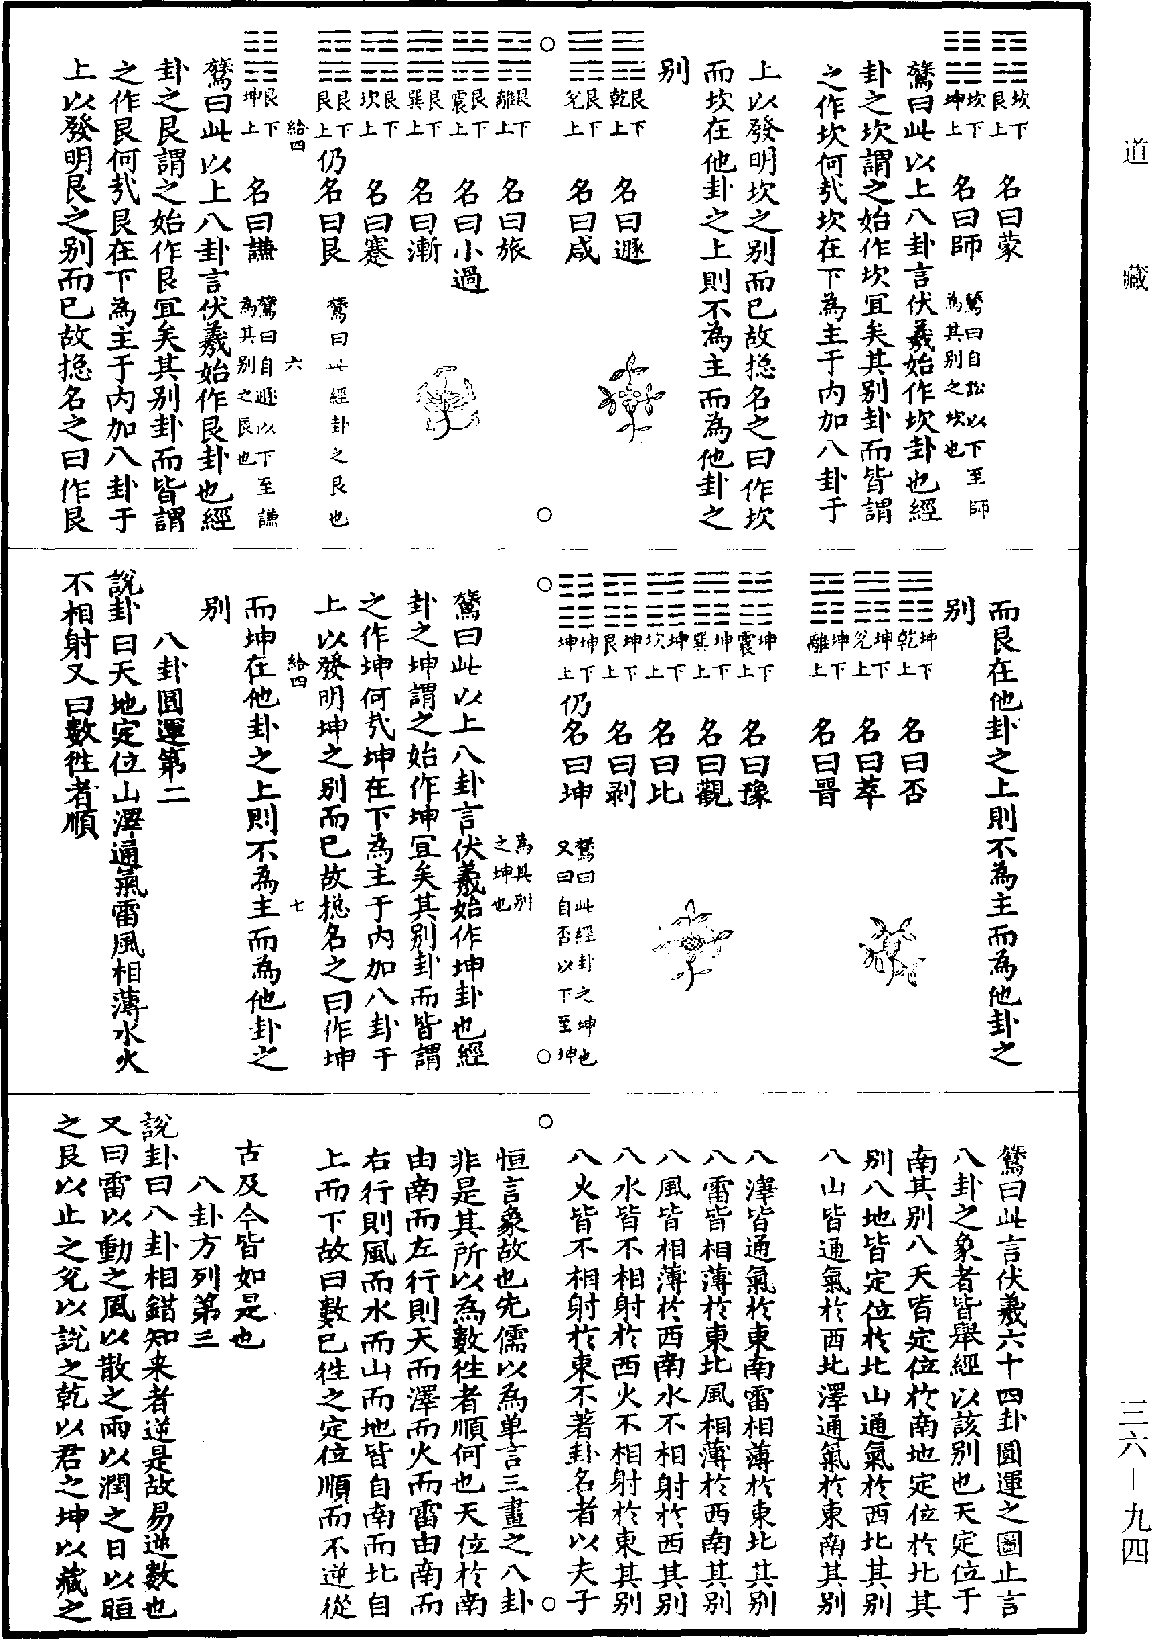 道藏
三六—九四
坎下艮上 名曰蒙
坎下坤上 名曰師 鶩曰自訟以下至師為其別之坎也
鶩曰此以上八卦言伏羲始作坎卦也經
卦之坎謂之始作坎宜矣其別卦而皆謂
之作坎何㢤坎在下為主于內加八卦于
上以發明坎之別而已故揔名之曰作坎
而坎在他卦之上則不為主而為他卦之
別
艮下乾上 名曰遯
艮下兌上 名曰咸
艮下離上 名曰旅
艮下震上 名曰小過
艮下巽上 名曰漸
艮下坎上 名曰蹇
艮下艮上 仍名曰艮 鶩曰此經卦之艮也
給四 六
艮下坤上 名曰謙 鶩曰自遯以下至謙為其別之艮也
鶩曰此以上八卦言伏羲始作艮卦也經
卦之艮謂之始作艮宜矣其別卦而皆謂
之作艮何㢤艮在下為主于內加八卦于
上以發明艮之別而已故揔名之曰作艮
而艮在他卦之上則不為主而為他卦之
別
坤下乾上 名曰否
坤下兌上 名曰萃
坤下離上 名曰晉
坤下震上 名曰豫
坤下巽上 名曰觀
坤下坎上 名曰比
坤下艮上 名曰剥
坤下坤上 仍名曰坤 鶩曰此經卦之坤也又曰自否以下至坤
為其別之坤也
鶩曰此以上八卦言伏羲始作坤卦也經
卦之坤謂之始作坤宜矣其別卦而皆謂
之作坤何㢤坤在下為主于內加八卦于
上以發明坤之別而已故揔名之曰作坤
給四 七
而坤在他卦之上則不為主而為他卦之
別
八卦圓運第二
說卦曰天地定位山澤通氣雷風相薄水火
不相射又曰數徃者順
鶩曰此言伏羲六十四卦圓運之圖止言
八卦之象者皆舉經以該別也天定位于
南其別八天皆定位於南地定位於北其
別八地皆定位於北山通氣於西北其別
八山皆通氣於西北澤通氣於東南其別
八澤皆通氣於東南雷相薄於東北其別
八雷皆相薄於東北風相薄於西南其別
八風皆相薄於西南水不相射於西其別
八水皆不相射於西火不相射於東其別
八火皆不相射於東不著卦名者以夫子
恒言象故也先儒以為单言三畫之八卦
非是其所以為數徃者順何也天位於南
由南而左行則天而澤而火而雷由南而
右行則風而水而山而地皆自南而北自
上而下故曰數已徃之定位順而不逆從
古及今皆如是也
八卦方列第三
說卦曰八卦相錯知来者逆是故易逆數也
又曰雷以動之風以散之雨以潤之日以晅
之艮以止之兌以說之乾以君之坤以藏之